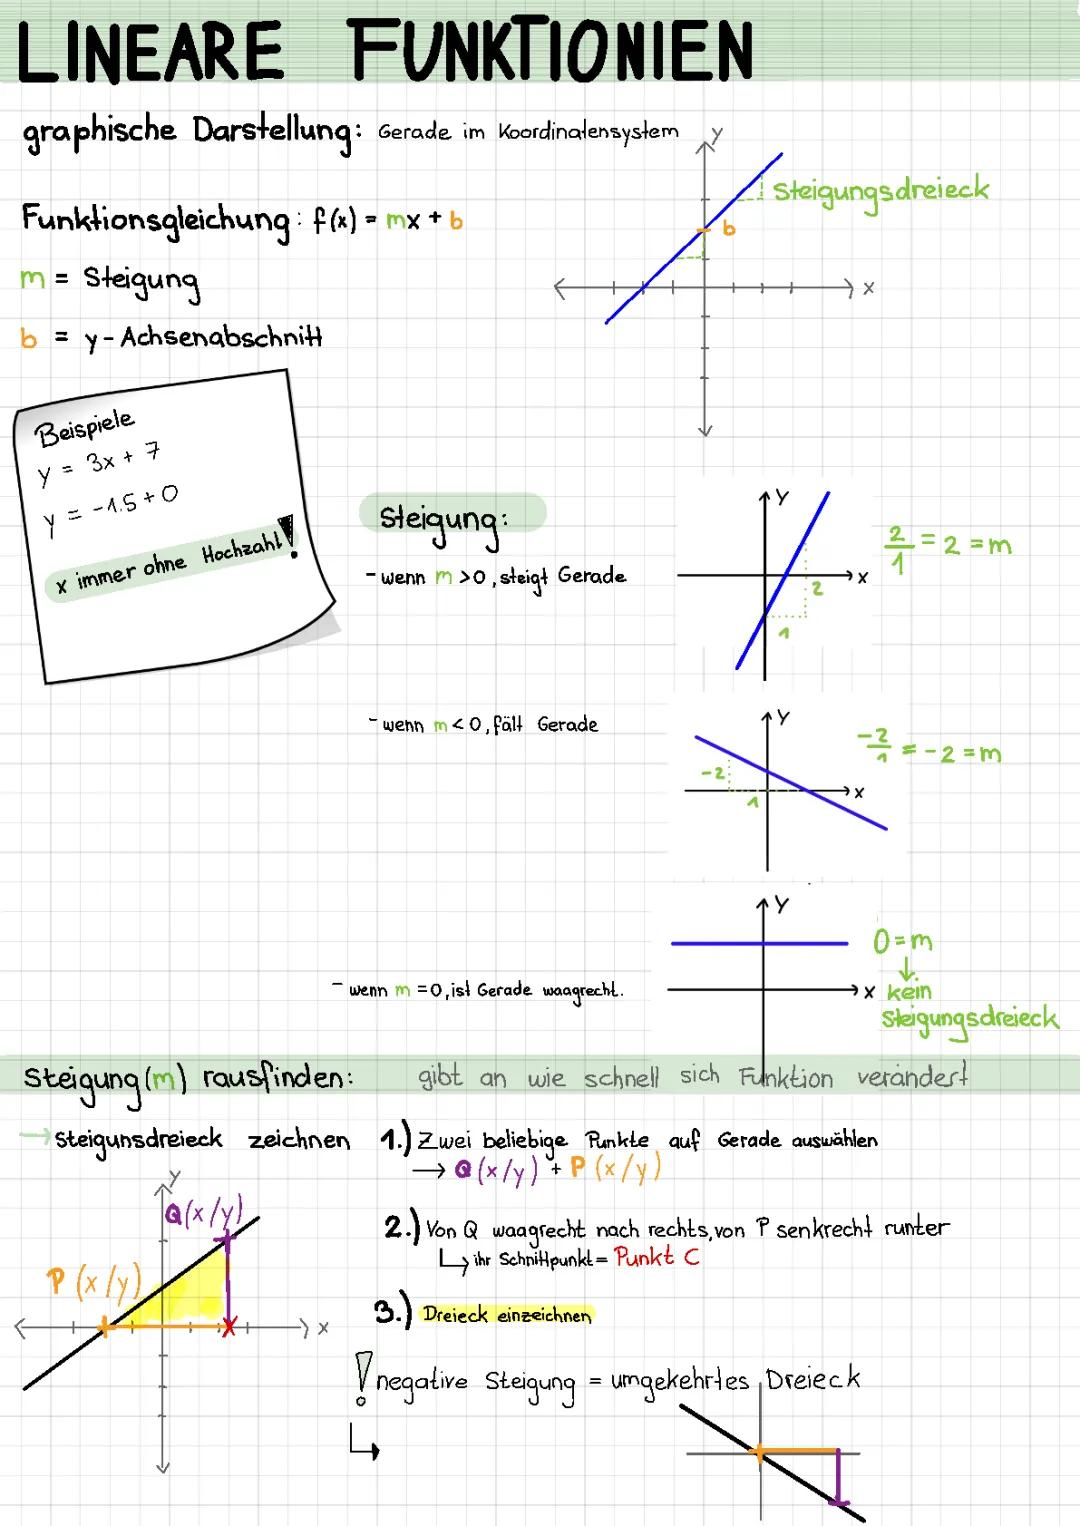 LINEARE FUNKTIONIEN
graphische Darstellung: Gerade im Koordinatensystem
y
Steigungsdreieck
b
x
Funktionsgleichung: f(x) = mx + b
m = Steigung
b = y-Achsenabschnitt
Beispiele
y = 3x + 7
y = -1.5 + 0
x immer ohne Hochzahl!
Steigung:
- wenn m >0, steigt Gerade
Y
x
2
1
2/1 = 2 = m
- wenn m < 0, fält Gerade
Y
x
-2
1
-2/1 = -2 = m
Y
x
- wenn m = 0, ist Gerade waagrecht.
0 = m
↓
kein
Steigungsdreieck
Steigung (m) rausfinden: gibt an wie schnell sich Funktion verändert
→ Steigunsdreieck zeichnen
1.) Zwei beliebige Punkte auf Gerade auswählen
→ Q (x/y) + P (x/y)
y
Q(x/y)
P (x/y)
x
2.) Von Q waagrecht nach rechts, von P senkrecht runter
↳ ihr Schnittpunkt = Punkt C
3.) Dreieck einzeichnen
! negative Steigung = umgekehrtes Dreieck
↳